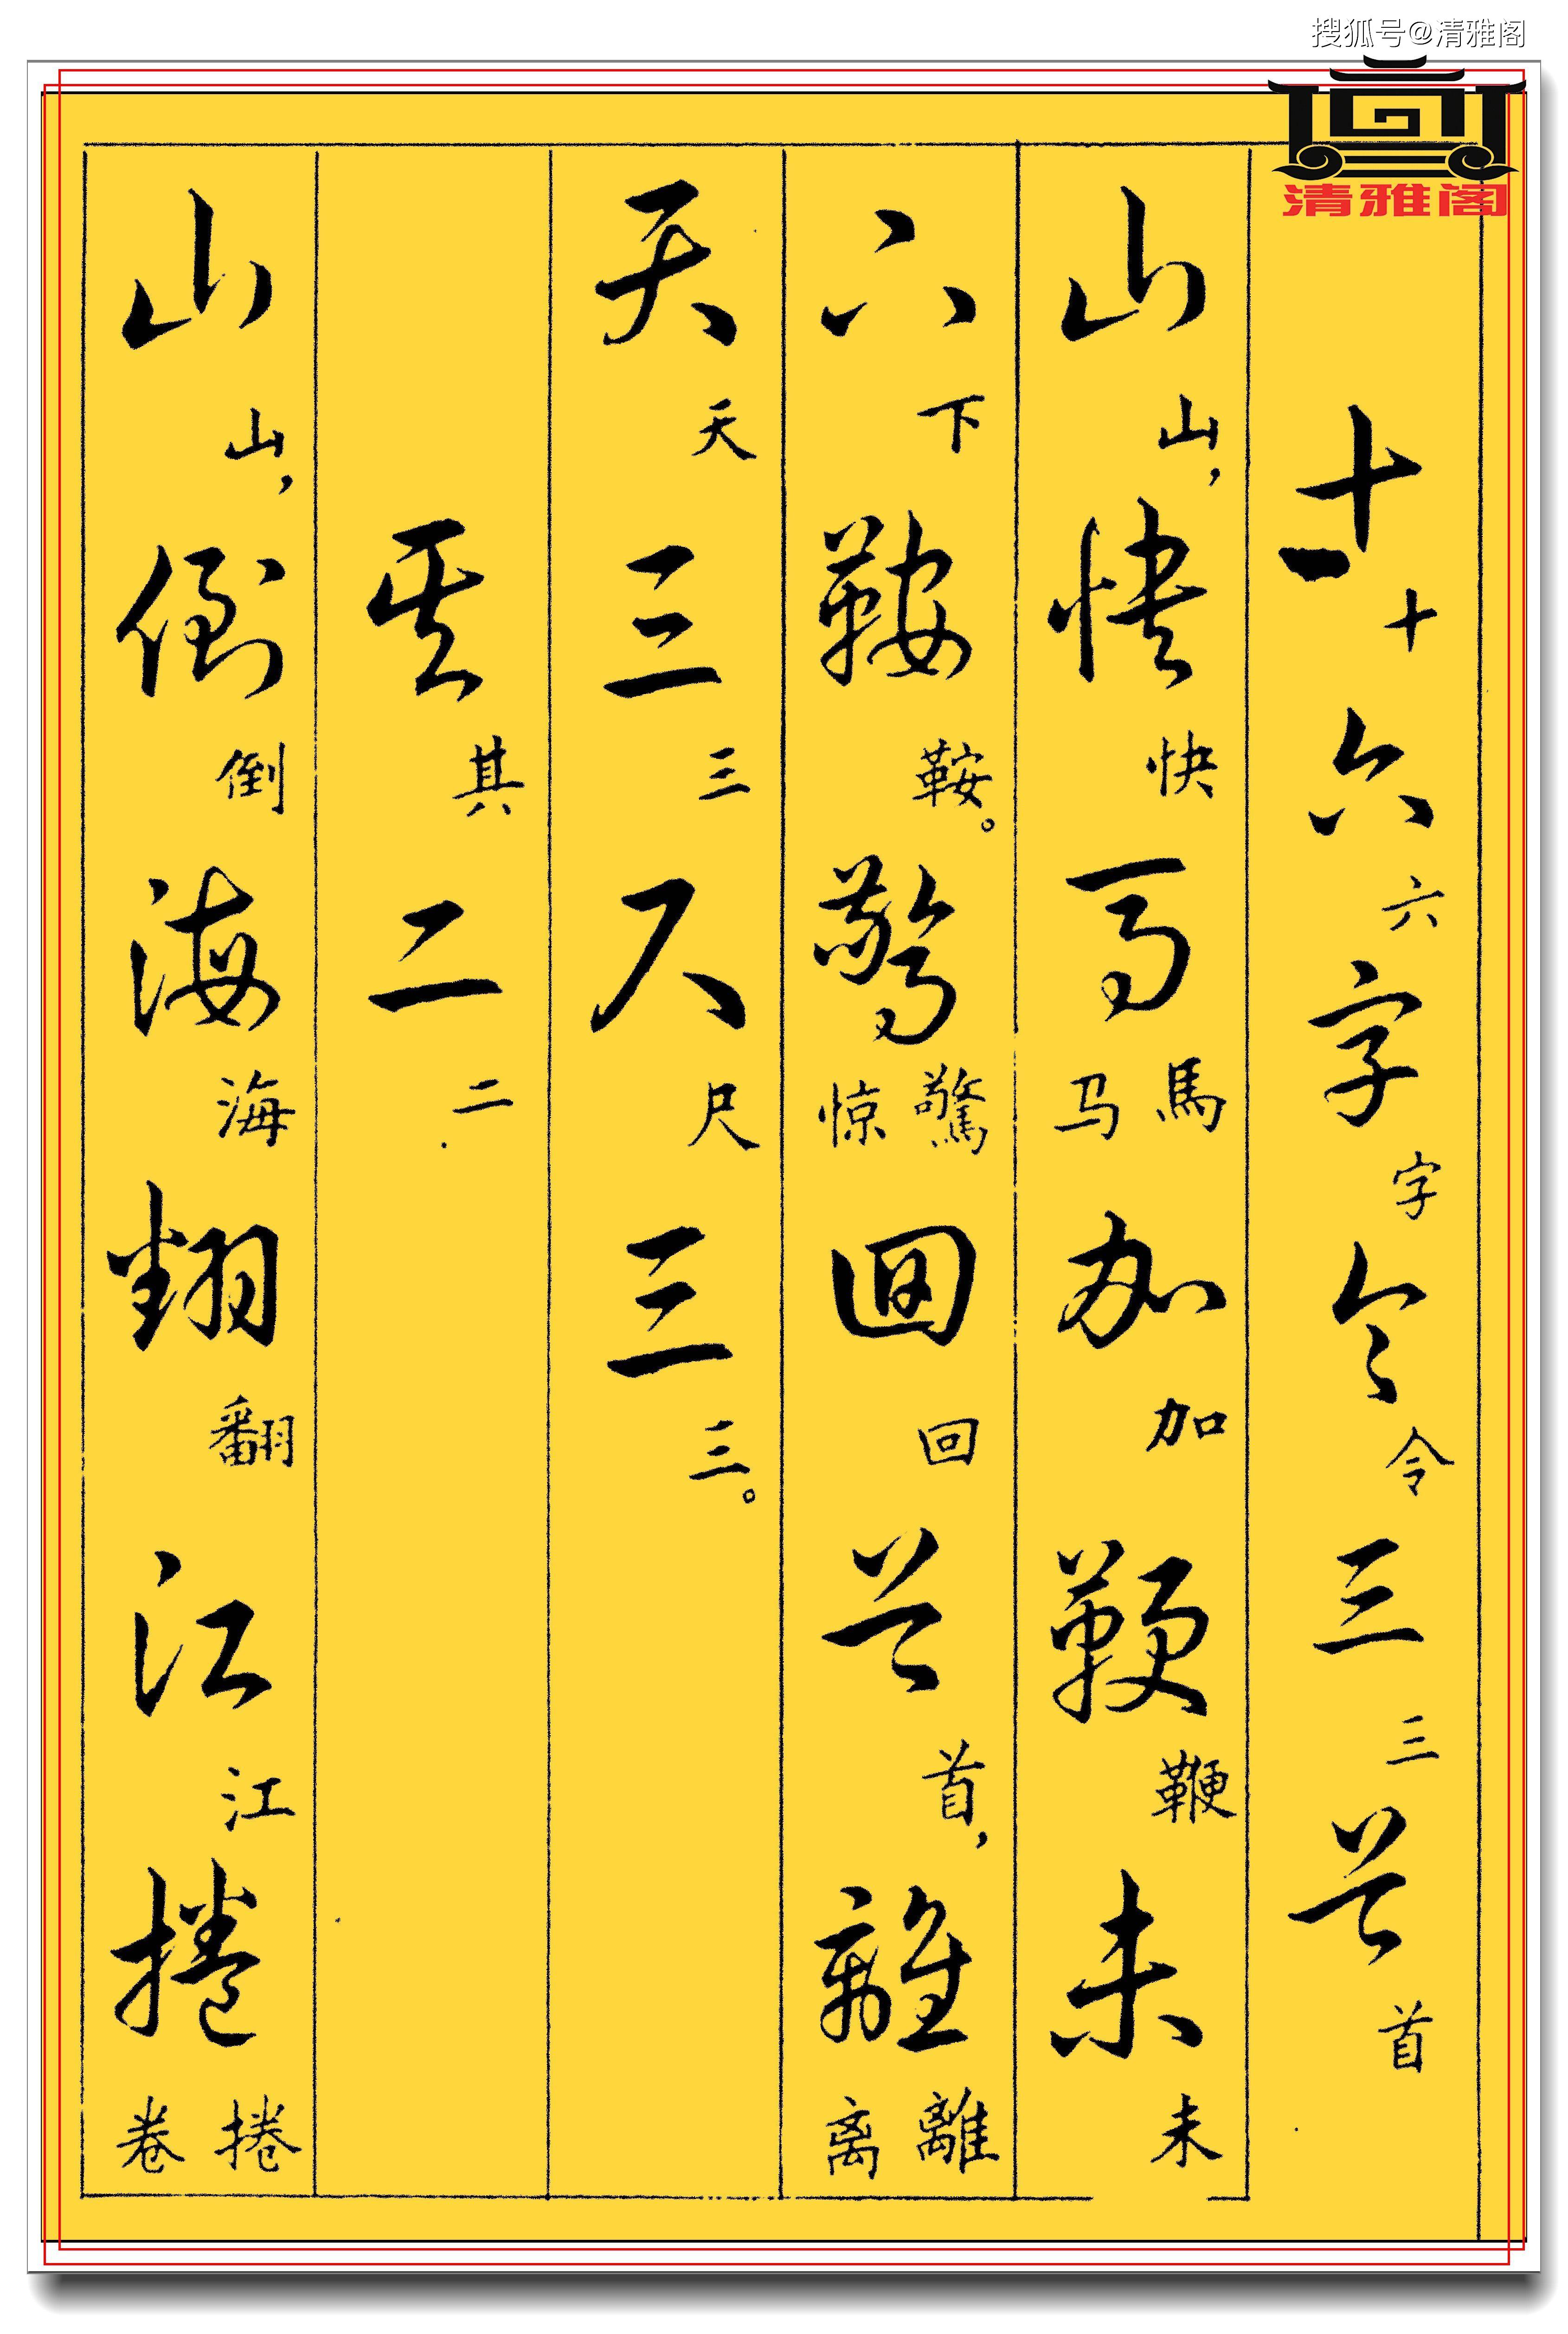 搜狐号@清雅阁
清雅阁
十十六六字字令令三三首首
山山，快快马馬马加加鞭鞭未未
下下鞍鞍。驚驚惊回回首首，離離离
天天三三尺尺三三。
其其二二
山山，倒倒海海翻翻江江捲捲卷